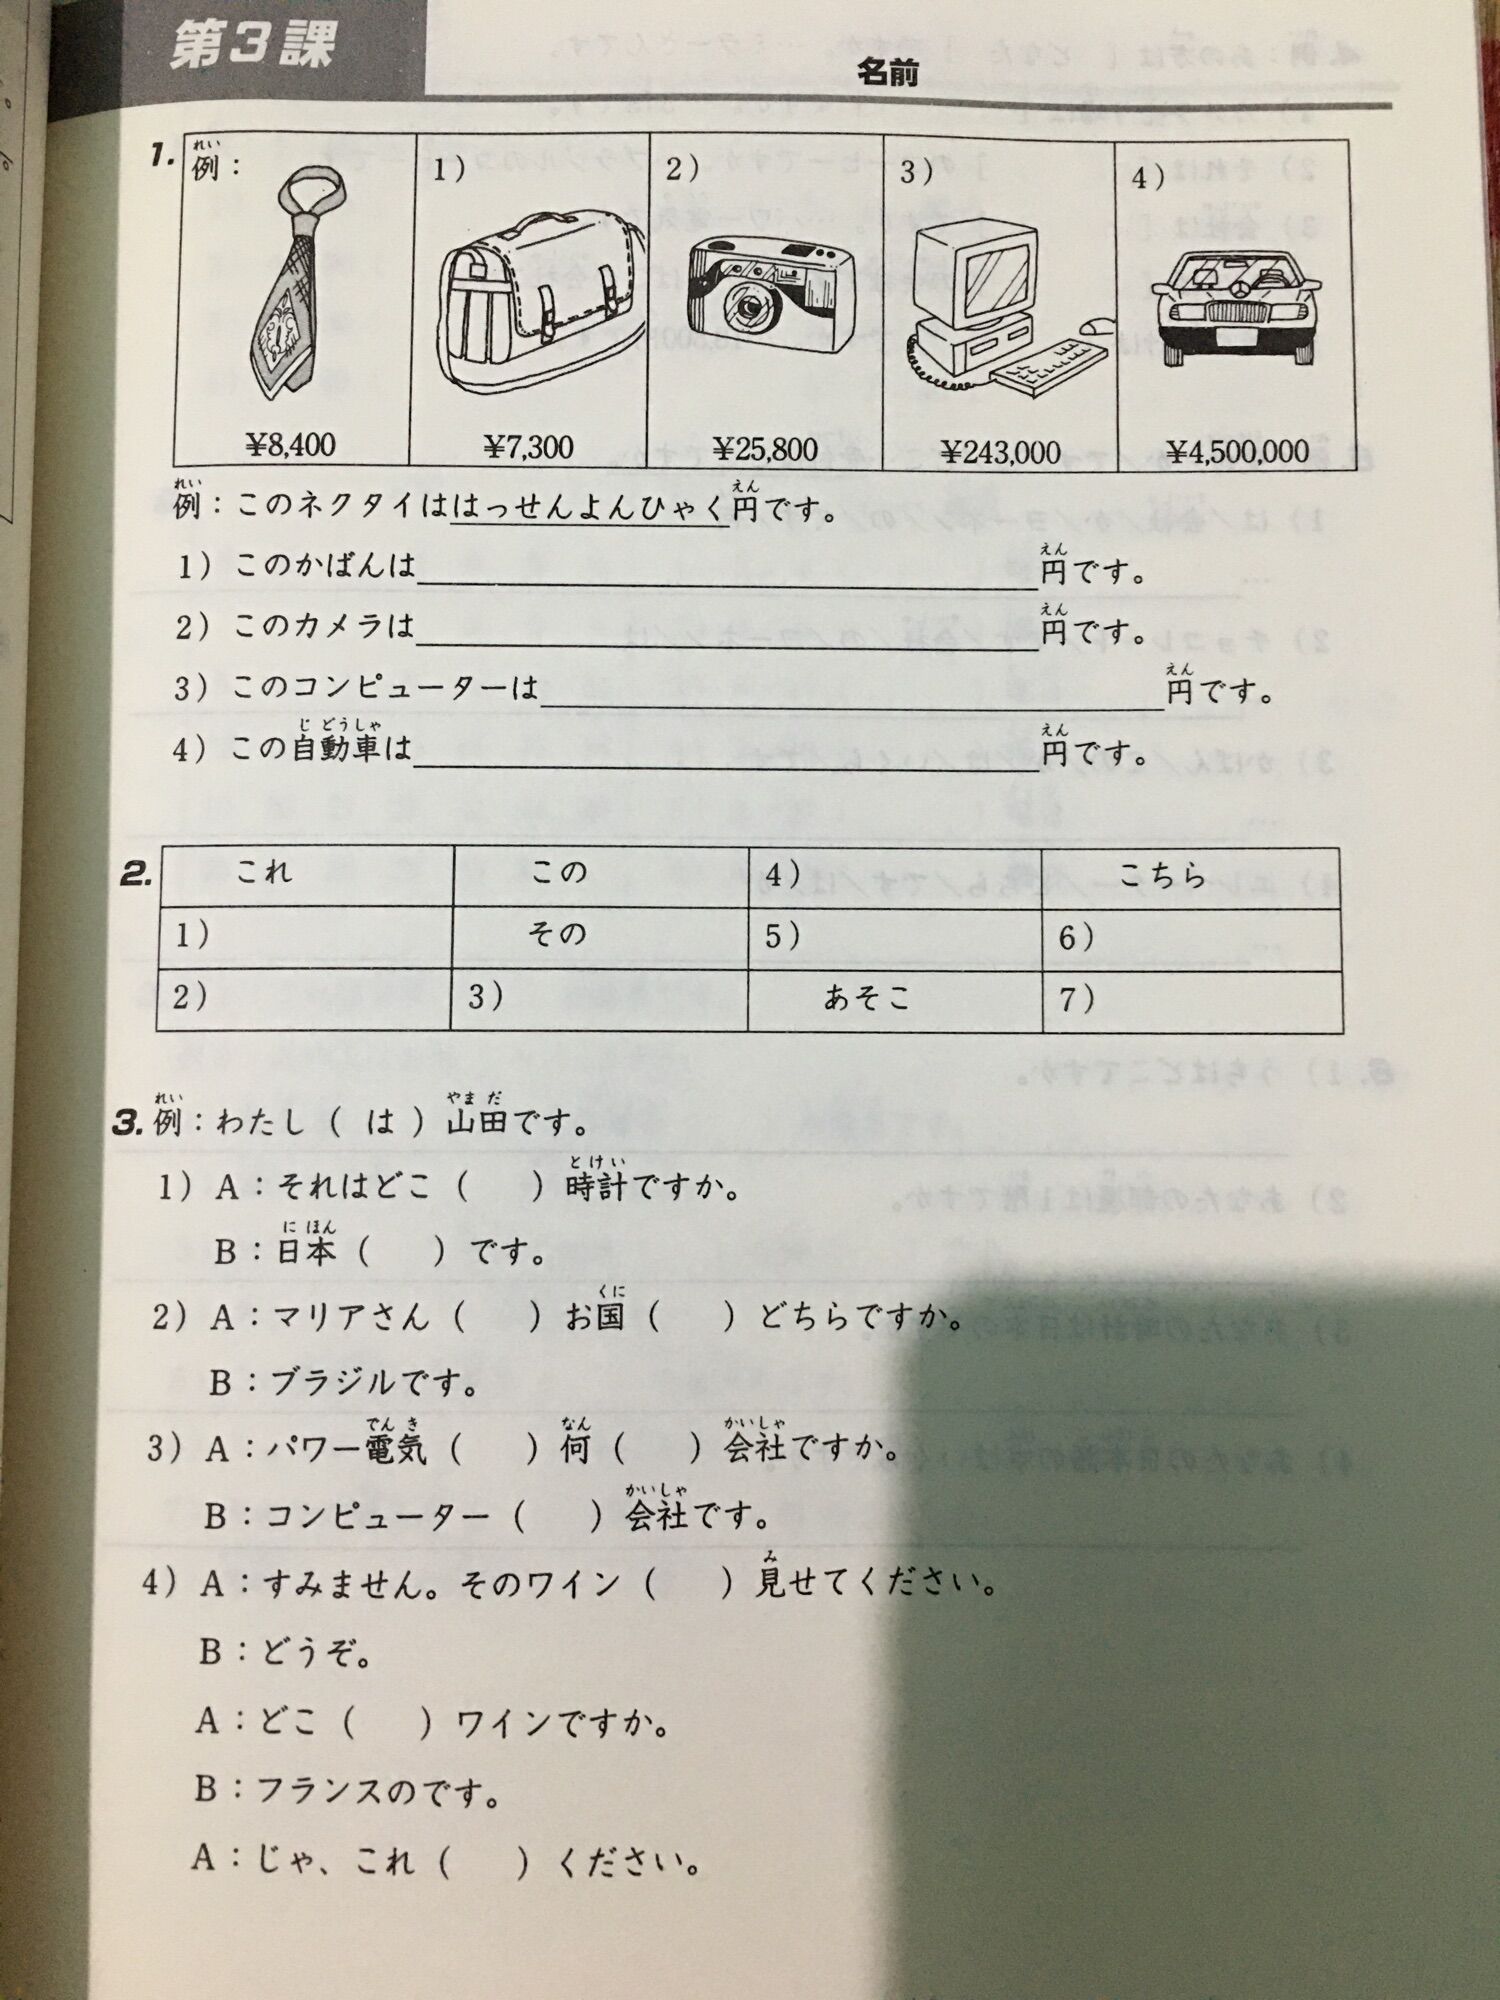 第3課
名前
1. 例： 1) 2) 3) 4)
れい
¥8,400 ¥7,300 ¥25,800 ¥243,000 ¥4,500,000
れい えん
例：このネクタイははっせんよんひゃく円です。
えん
1) このかばんは 円です。
えん
2) このカメラは 円です。
えん
3) このコンピューターは 円です。
じ どうしゃ えん
4) この自動車は 円です。
2. これ この 4) こちら
1) その 5) 6)
2) 3) あそこ 7)
れい やま だ
3. 例：わたし（ は ）山田です。
と けい
1) A：それはどこ（ ）時計ですか。
に ほん
B：日本（ ）です。
くに
2) A：マリアさん（ ）お国（ ）どちらですか。
B：ブラジルです。
でん き なん かいしゃ
3) A：パワー電気（ ）何（ ）会社ですか。
かいしゃ
B：コンピューター（ ）会社です。
み
4) A：すみません。そのワイン（ ）見せてください。
B：どうぞ。
A：どこ（ ）ワインですか。
B：フランスのです。
A：じゃ、これ（ ）ください。